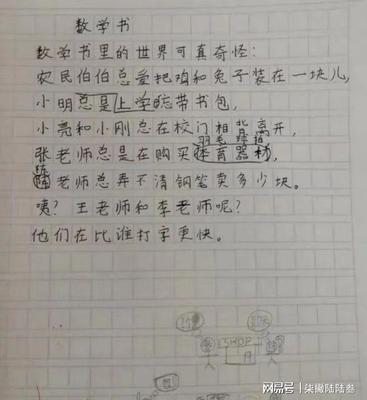 数学书
数学书里的世界可真奇怪:
农民伯伯总爱把鸡和兔子装在一块儿,
小明总是上学忘带书包,
小亮和小刚总在校门相背离开,
羽毛球拍
张老师总是在购买体育器材,
陈老师总弄不清钢笔卖多少块。
咦?王老师和李老师呢?
他们在比谁打字更快。
SHOP
网易号 | 柒橄陆陆叁